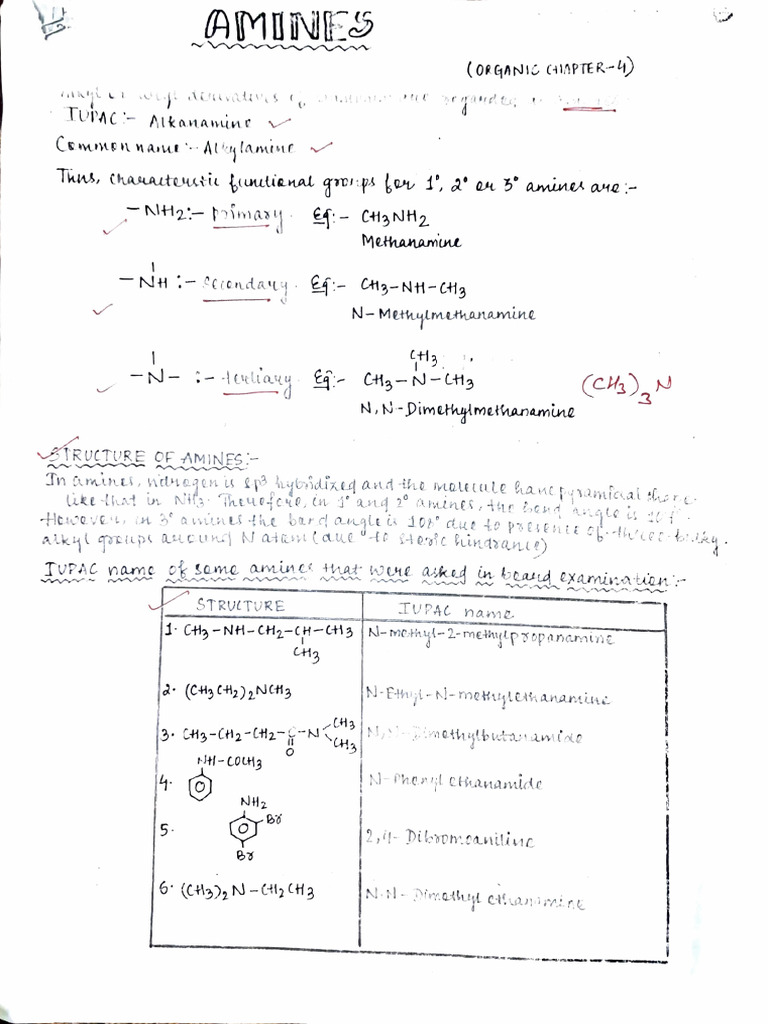 AMINES
(ORGANIC CHAPTER-4)
Alkyl or aryl derivatives of ammonia are regarded
IUPAC:- Alkanamine
Common name:- Alkylamine
Thus, characteristic functional groups for 1°, 2° or 3° amines are:-
-NH2:- Primary. Eg:- CH3NH2
Methanamine
-NH :- Secondary. Eg:- CH3-NH-CH3
N-Methylmethanamine
CH3
-N- :- tertiary. Eg:- CH3-N-CH3 (CH3)3N
N,N-Dimethylmethanamine
STRUCTURE OF AMINES:-
In amines, nitrogen is sp3 hybridized and the molecule have pyramidal shape
like that in NH3. Therefore, in 1° and 2° amines, the bond angle is
However, in 3° amines the bond angle is 108° due to presence of three bulky
alkyl groups around N atom (due to steric hindrance)
IUPAC name of some amines that were asked in board examination:-
STRUCTURE IUPAC name
1. CH3-NH-CH2-CH-CH3 N-methyl-2-methylpropanamine
CH3
2. (CH3CH2)2NCH3 N-Ethyl-N-methylethanamine
3. CH3-CH2-CH2-C-N CH3 N,N-Dimethylbutanamide
O CH3
NH-COCH3
4. N-Phenyl ethanamide
NH2
5. Br 2,4-Dibromoaniline
Br
6. (CH3)2N-CH2CH3 N-N-Dimethyl ethanamine